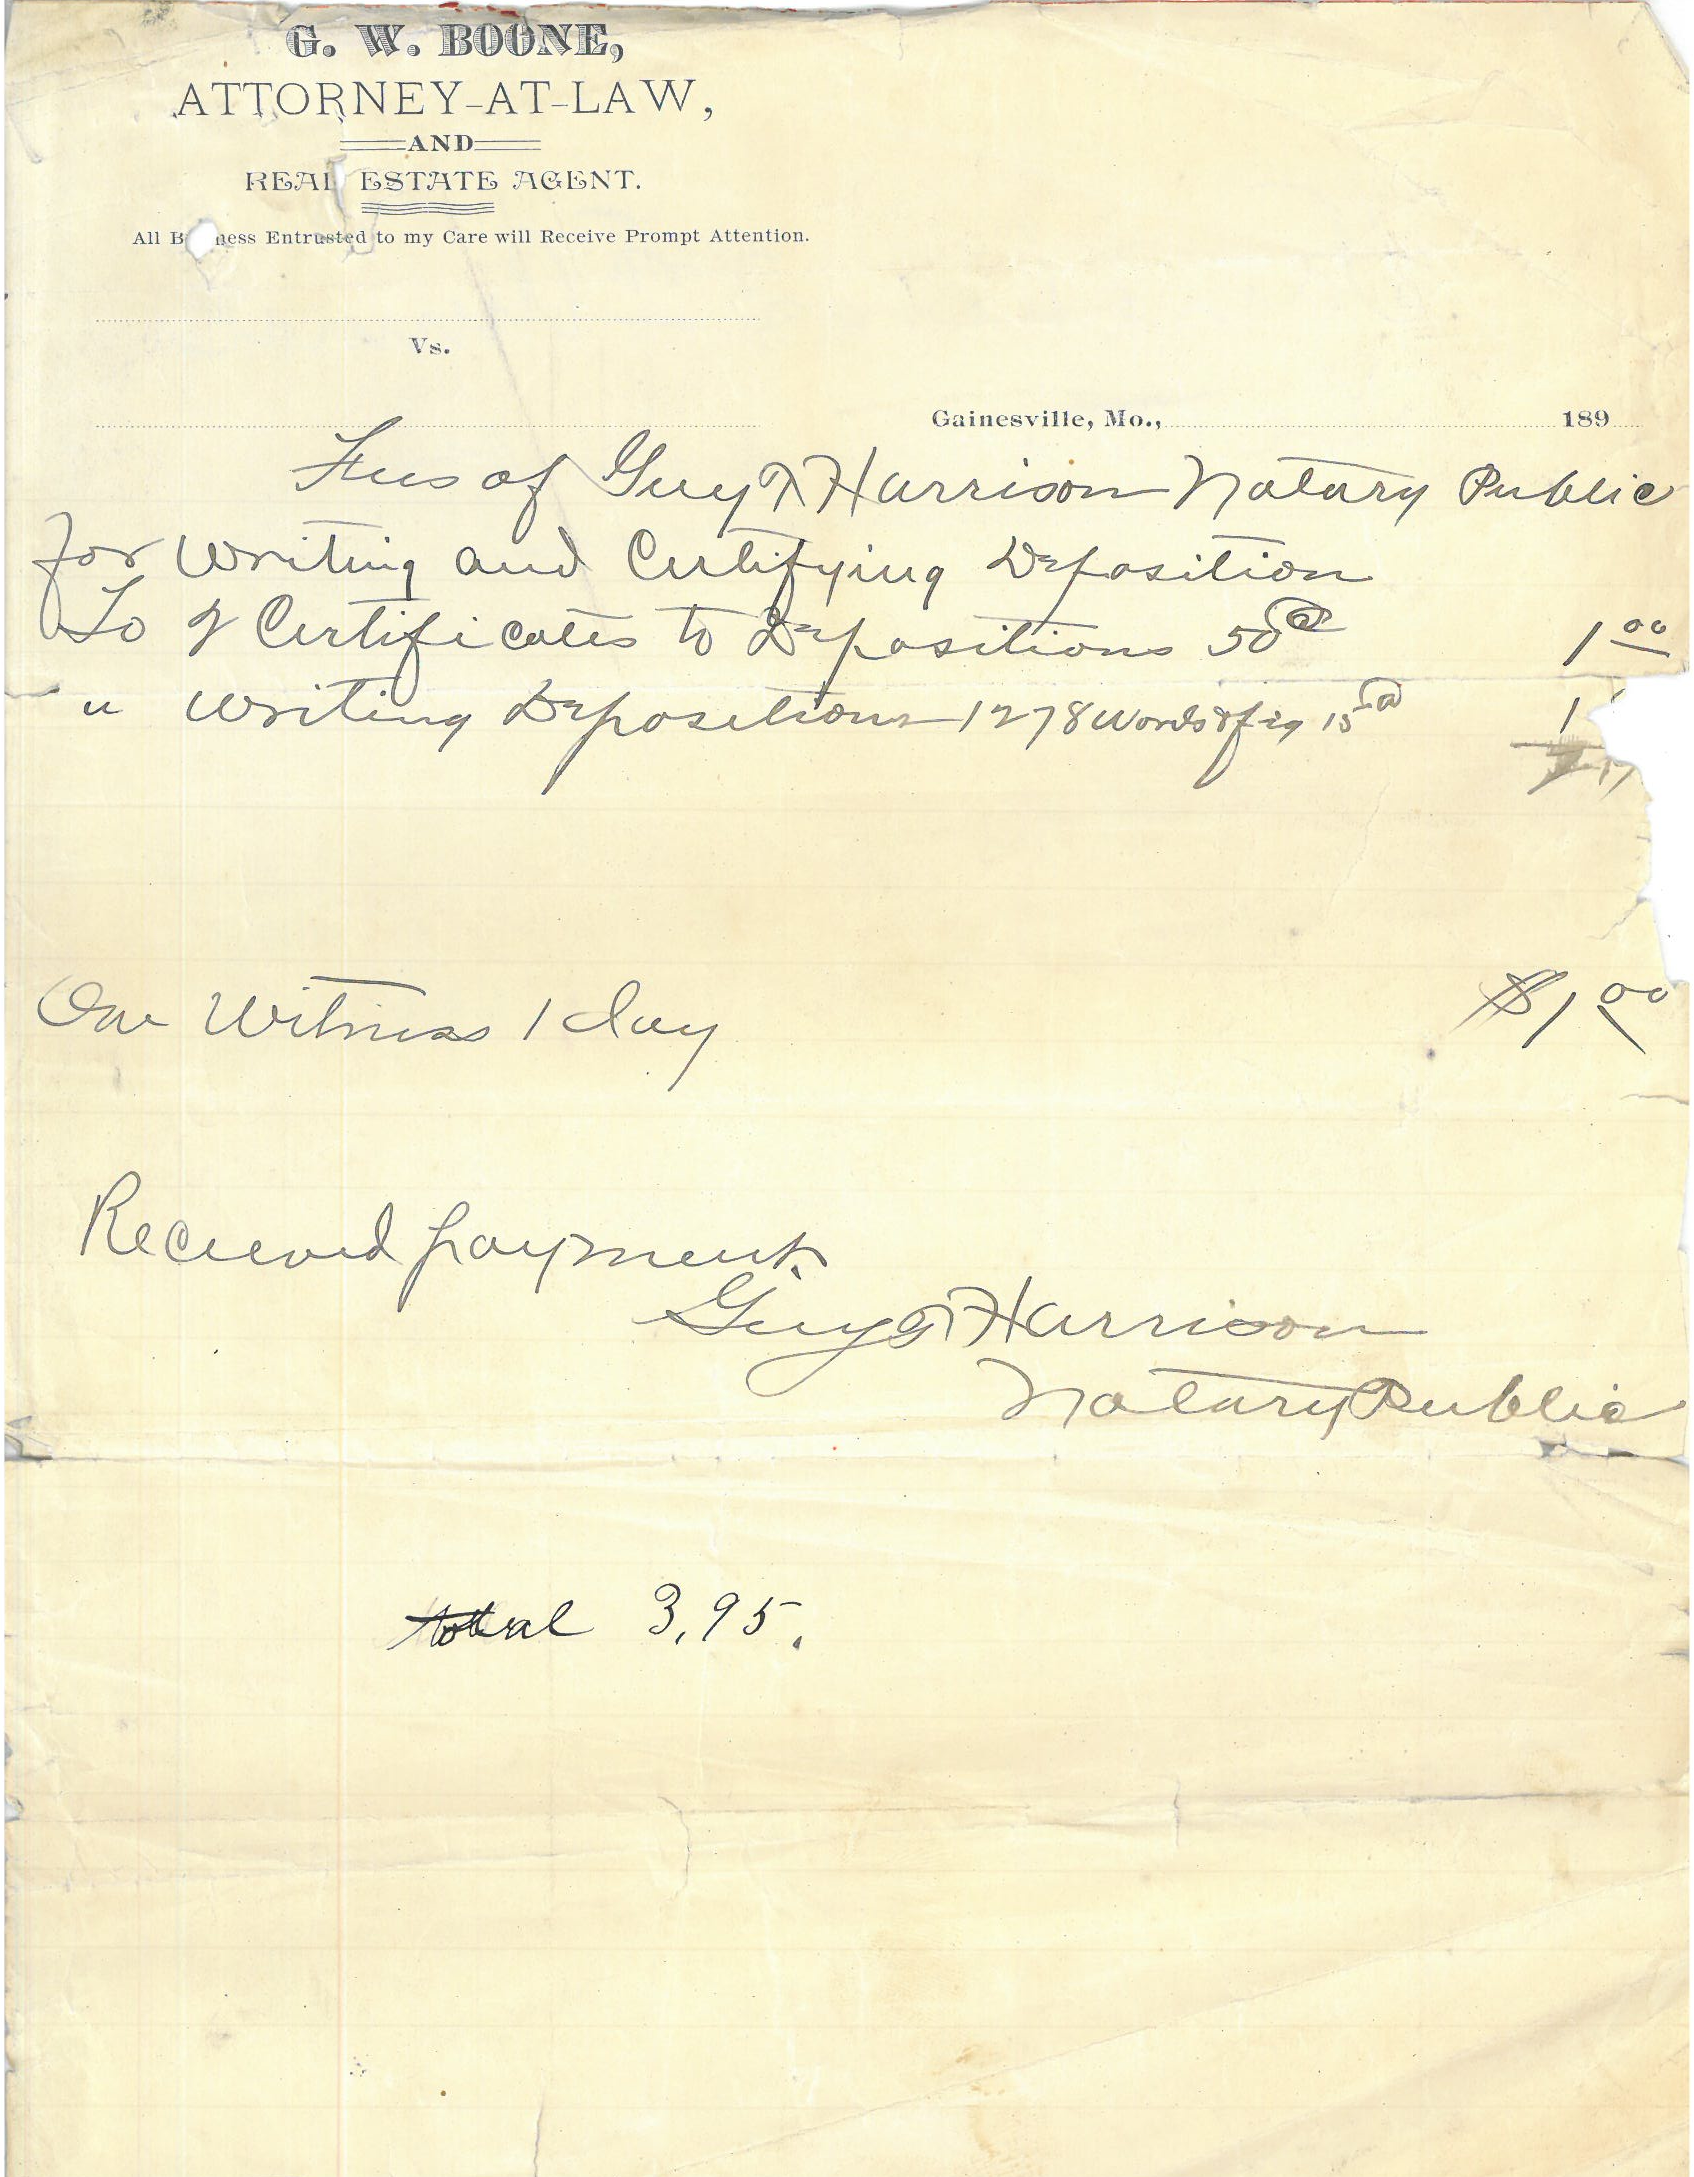 G. W. BOONE,
ATTORNEY-AT-LAW,
AND
REAL ESTATE AGENT.
All B ness Entrusted to my Care will Receive Prompt Attention.
Vs.
Gainesville, Mo., 189
Fees of Guy T Harrison Notary Public
for Writing and Certifying Deposition
To 2 Certificates to Depositions 50 @ 1 00
" Writing Depositions 1278 Words & fig 15 @ 1
One Witness 1 day $1 00
Received payment.
Guy T Harrison
Notary Public
total 3,95.